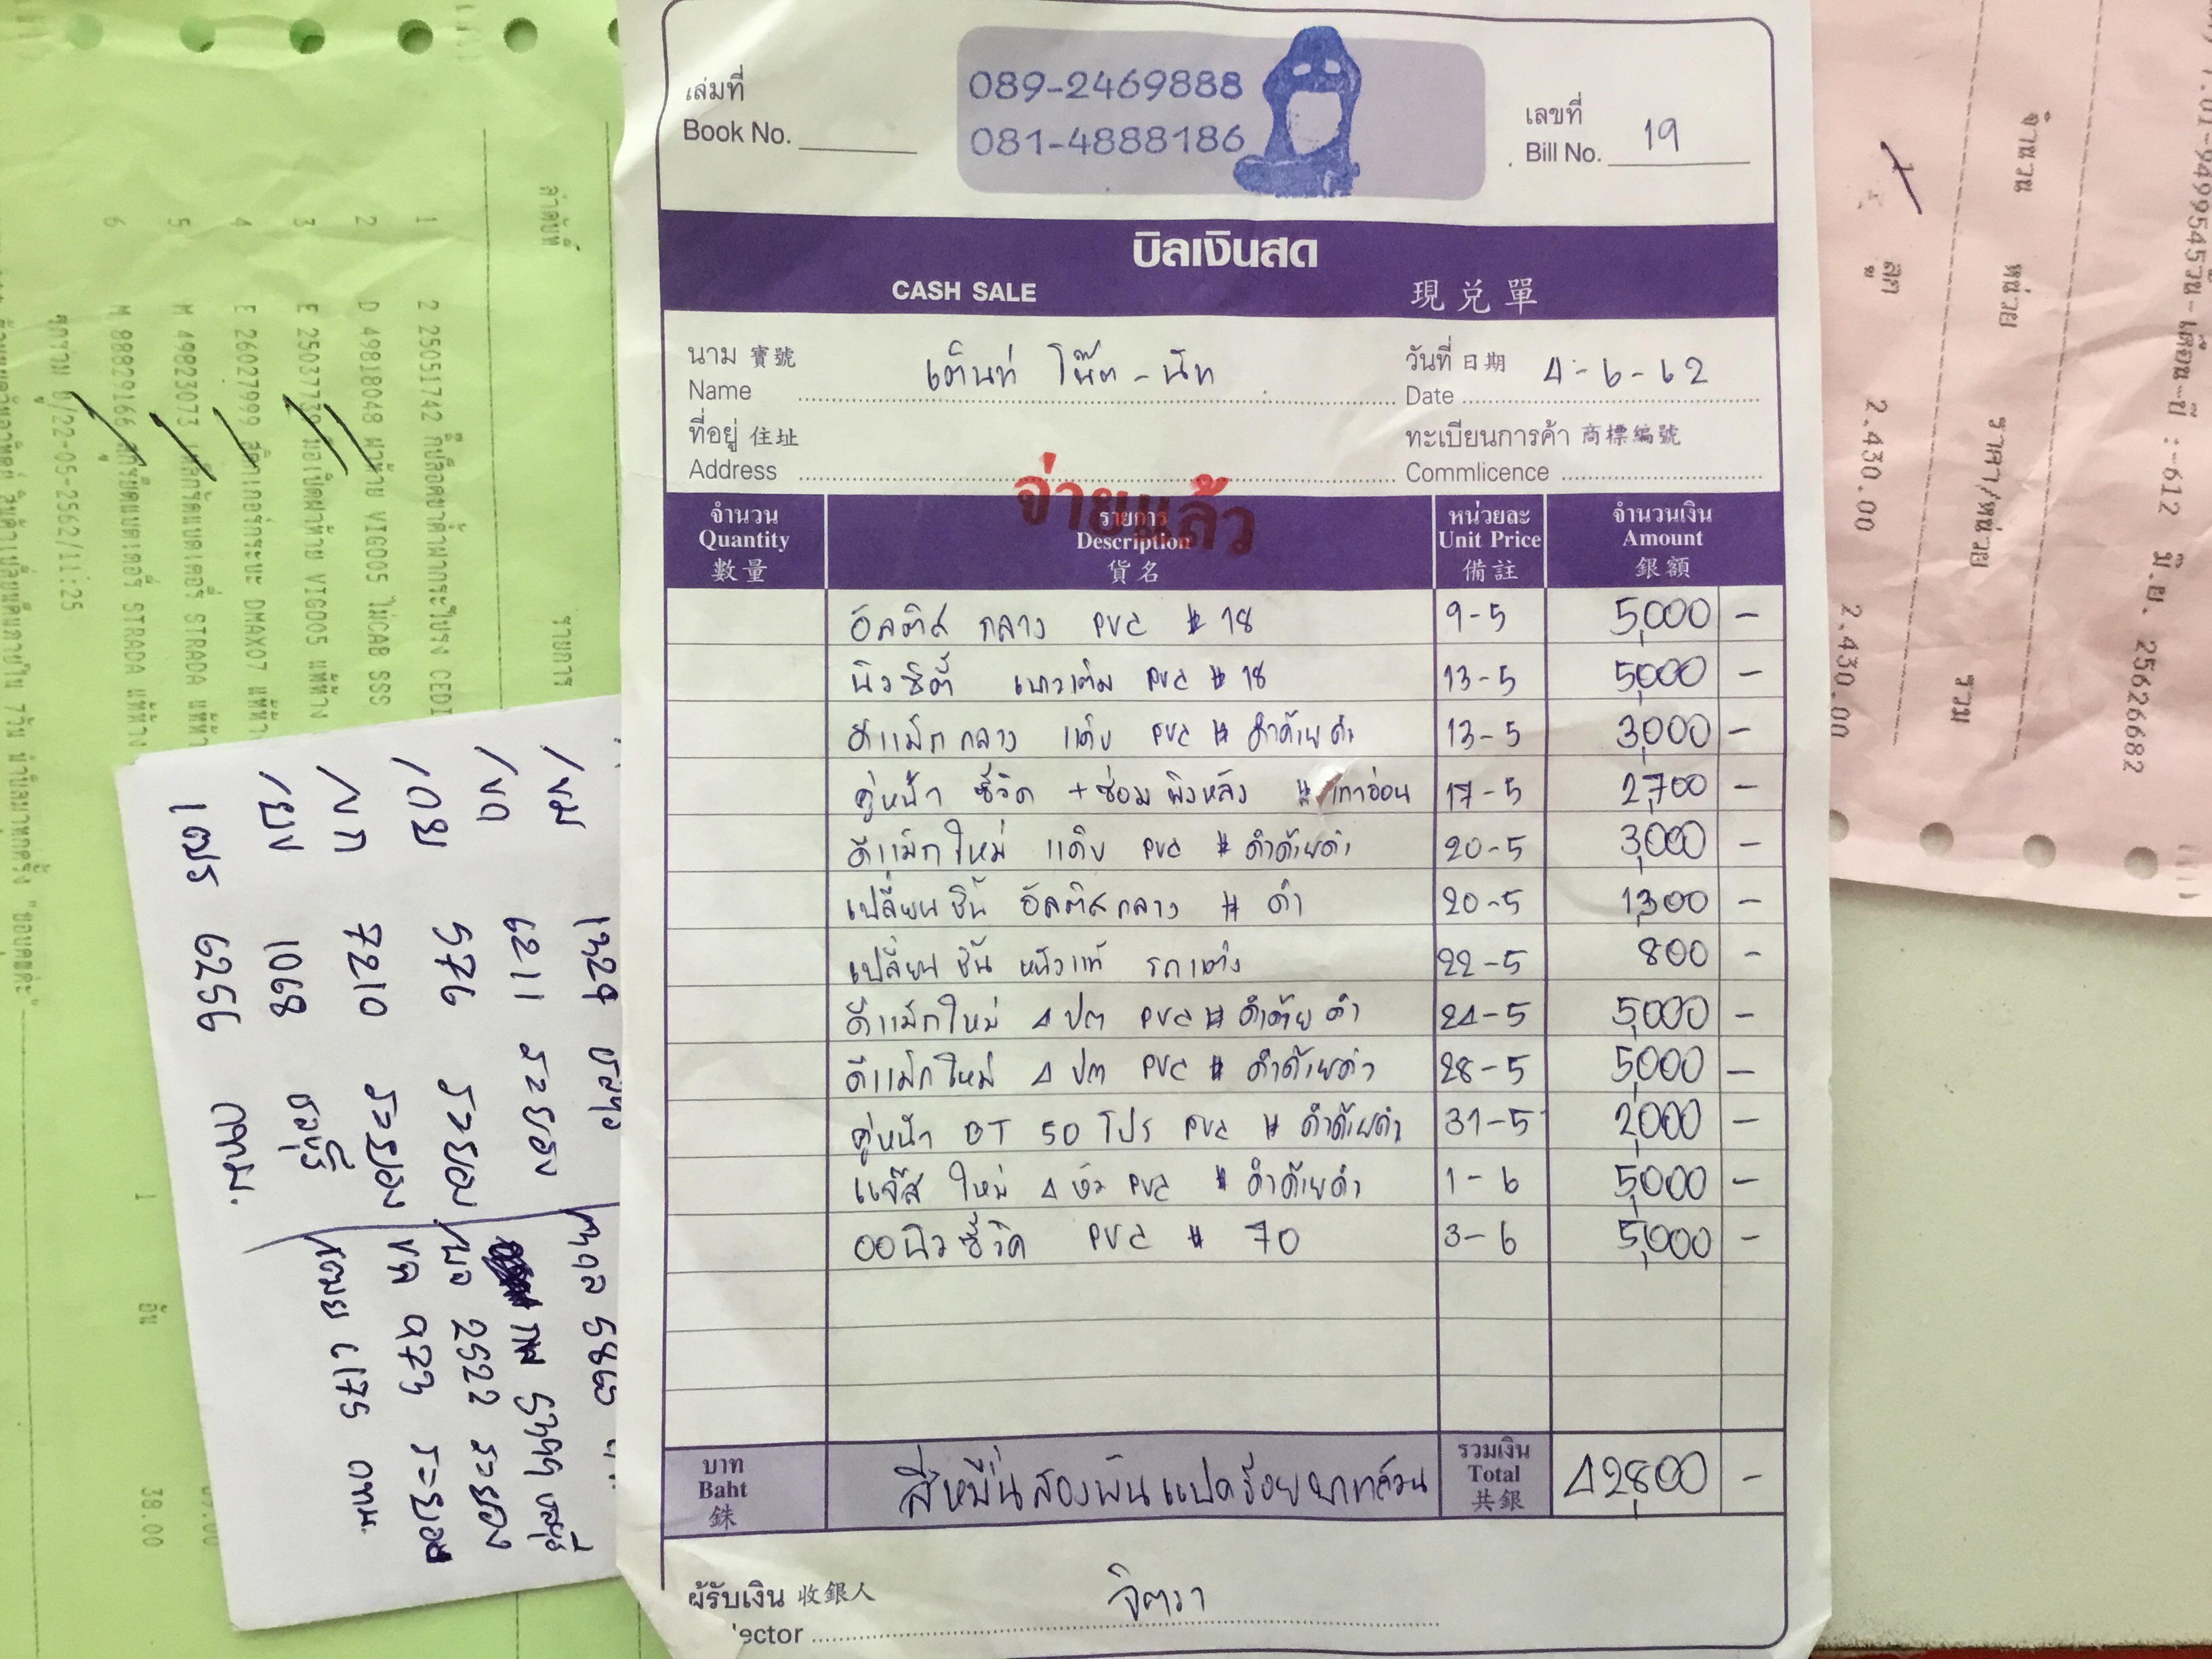 เล่มที่
Book No.
089-2469888
081-4888186
เลขที่
Bill No. 19
บิลเงินสด
CASH SALE 現兌單
นาม 寶號
Name
เต็นท์ โน๊ต-นัท
วันที่ 日期
Date
4-6-62
ที่อยู่ 住址
Address
ทะเบียนการค้า 商標編號
Commlicence
จ่ายแล้ว
จำนวน รายการ หน่วยละ จำนวนเงิน
Quantity Description Unit Price Amount
數量 貨名 備註 銀額
อัลติส กลาง PVC # 18 9-5 5,000 -
นิวซิตี้ PVC # 18 13-5 5,000 -
ดีแม็กกลาง แค๊บ PVC # ดำด้ายดำ 13-5 3,000 -
คู่หน้า ซีวิค +ซ่อมพิงหลัง # เทาอ่อน 17-5 2,700 -
ดีแม็กใหม่ แค๊บ PVC # ดำด้ายดำ 20-5 3,000 -
เปลี่ยนชิ้น อัลติสกลาง # ดำ 20-5 1,300 -
เปลี่ยนชิ้น หนังแท้ รถแต่ง 22-5 800 -
ดีแม็กใหม่ 4 ปต PVC # ดำด้ายดำ 24-5 5,000 -
ดีแม็กใหม่ 4 ปต PVC # ดำด้ายดำ 28-5 5,000 -
คู่หน้า BT 50 โปร PVC # ดำด้ายดำ 31-5 2,000 -
แจ๊ส ใหม่ 4 หัว PVC # ดำด้ายดำ 1-6 5,000 -
00 นิวซีวิค PVC # 70 3-6 5,000 -
บาท
Baht
銖
สี่หมื่นสองพันแปดร้อยบาทถ้วน
รวมเงิน
Total
共銀
42,800 -
ผู้รับเงิน 收銀人
จิตรา
ector
ลำดับที่ รายการ
1 2 25051742 CEDI
2 D 49818048 ผ้าท้าย VIGO05 ไม่CAB SSS
3 E 25037739 มือเปิดฝาท้าย VIGO05 แท้ห้าง
4 E 26027999 สติกเกอร์กระบะ DMAX07
5 M 49823073 STRADA
6 M 88829166 STRADA แท้ห้าง
22-05-2562/11:25
1 อัน
38.00
/ขม 1329 ชลบุรี
/ขต 6211 ระยอง
/กย 576 ระยอง
/บก 7210 ระยอง
/ยง 1068 ชลบุรี
6256 กทม.
5865
5399 ชลบุรี
2522 ระยอง
973 ระยอง
กทม.
01-9499545
วัน-เดือน-ปี :-612 มิ.ย. 25626682
จำนวน หน่วย ราคา/หน่วย รวม
1 ลูก 2.430.00 2.430.00